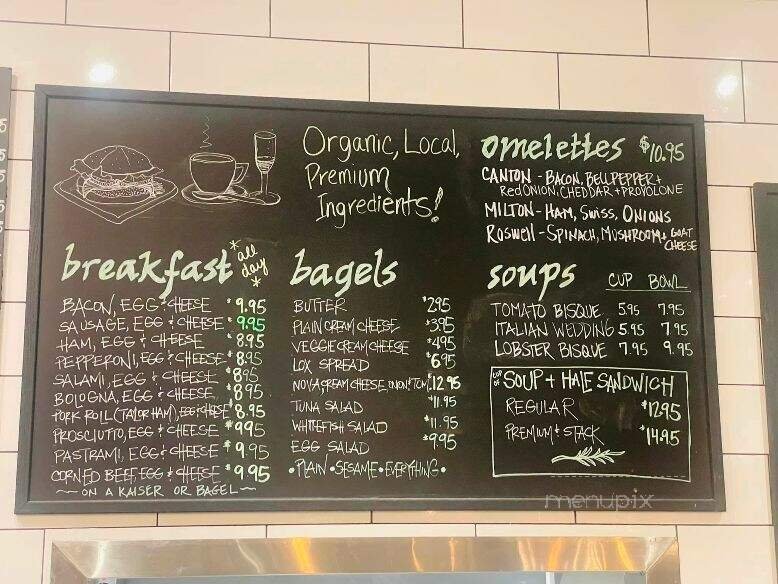 Organic, Local,
Premium
Ingredients!
omelettes $10.95
CANTON - BACON, BELL PEPPER +
Red ONION, CHEDDAR + PROVOLONE
MILTON - HAM, SWISS, ONIONS
ROSWELL - SPINACH, MUSHROOM + GOAT
CHEESE
breakfast *all day*
BACON, EGG & CHEESE $9.95
SAUSAGE, EGG & CHEESE $9.95
HAM, EGG & CHEESE $8.95
PEPPERONI, EGG & CHEESE $8.95
SALAMI, EGG & CHEESE $8.95
BOLOGNA, EGG & CHEESE $8.95
PORK ROLL (TAYLOR HAM), EGG & CHEESE $8.95
PROSCIUTTO, EGG & CHEESE $9.95
PASTRAMI, EGG & CHEESE $9.95
CORNED BEEF, EGG & CHEESE $9.95
~ ON A KAISER OR BAGEL ~
bagels
BUTTER $2.95
PLAIN CREAM CHEESE $3.95
VEGGIE CREAM CHEESE $4.95
LOX SPREAD $6.95
NOVA CREAM CHEESE, ONION & TOM. $12.95
TUNA SALAD $11.95
WHITEFISH SALAD $11.95
EGG SALAD $9.95
• PLAIN • SESAME • EVERYTHING •
soups CUP BOWL
TOMATO BISQUE 5.95 7.95
ITALIAN WEDDING 5.95 7.95
LOBSTER BISQUE 7.95 9.95
CUP OF SOUP + HALF SANDWICH
REGULAR $12.95
PREMIUM & STACK $14.95
menupix